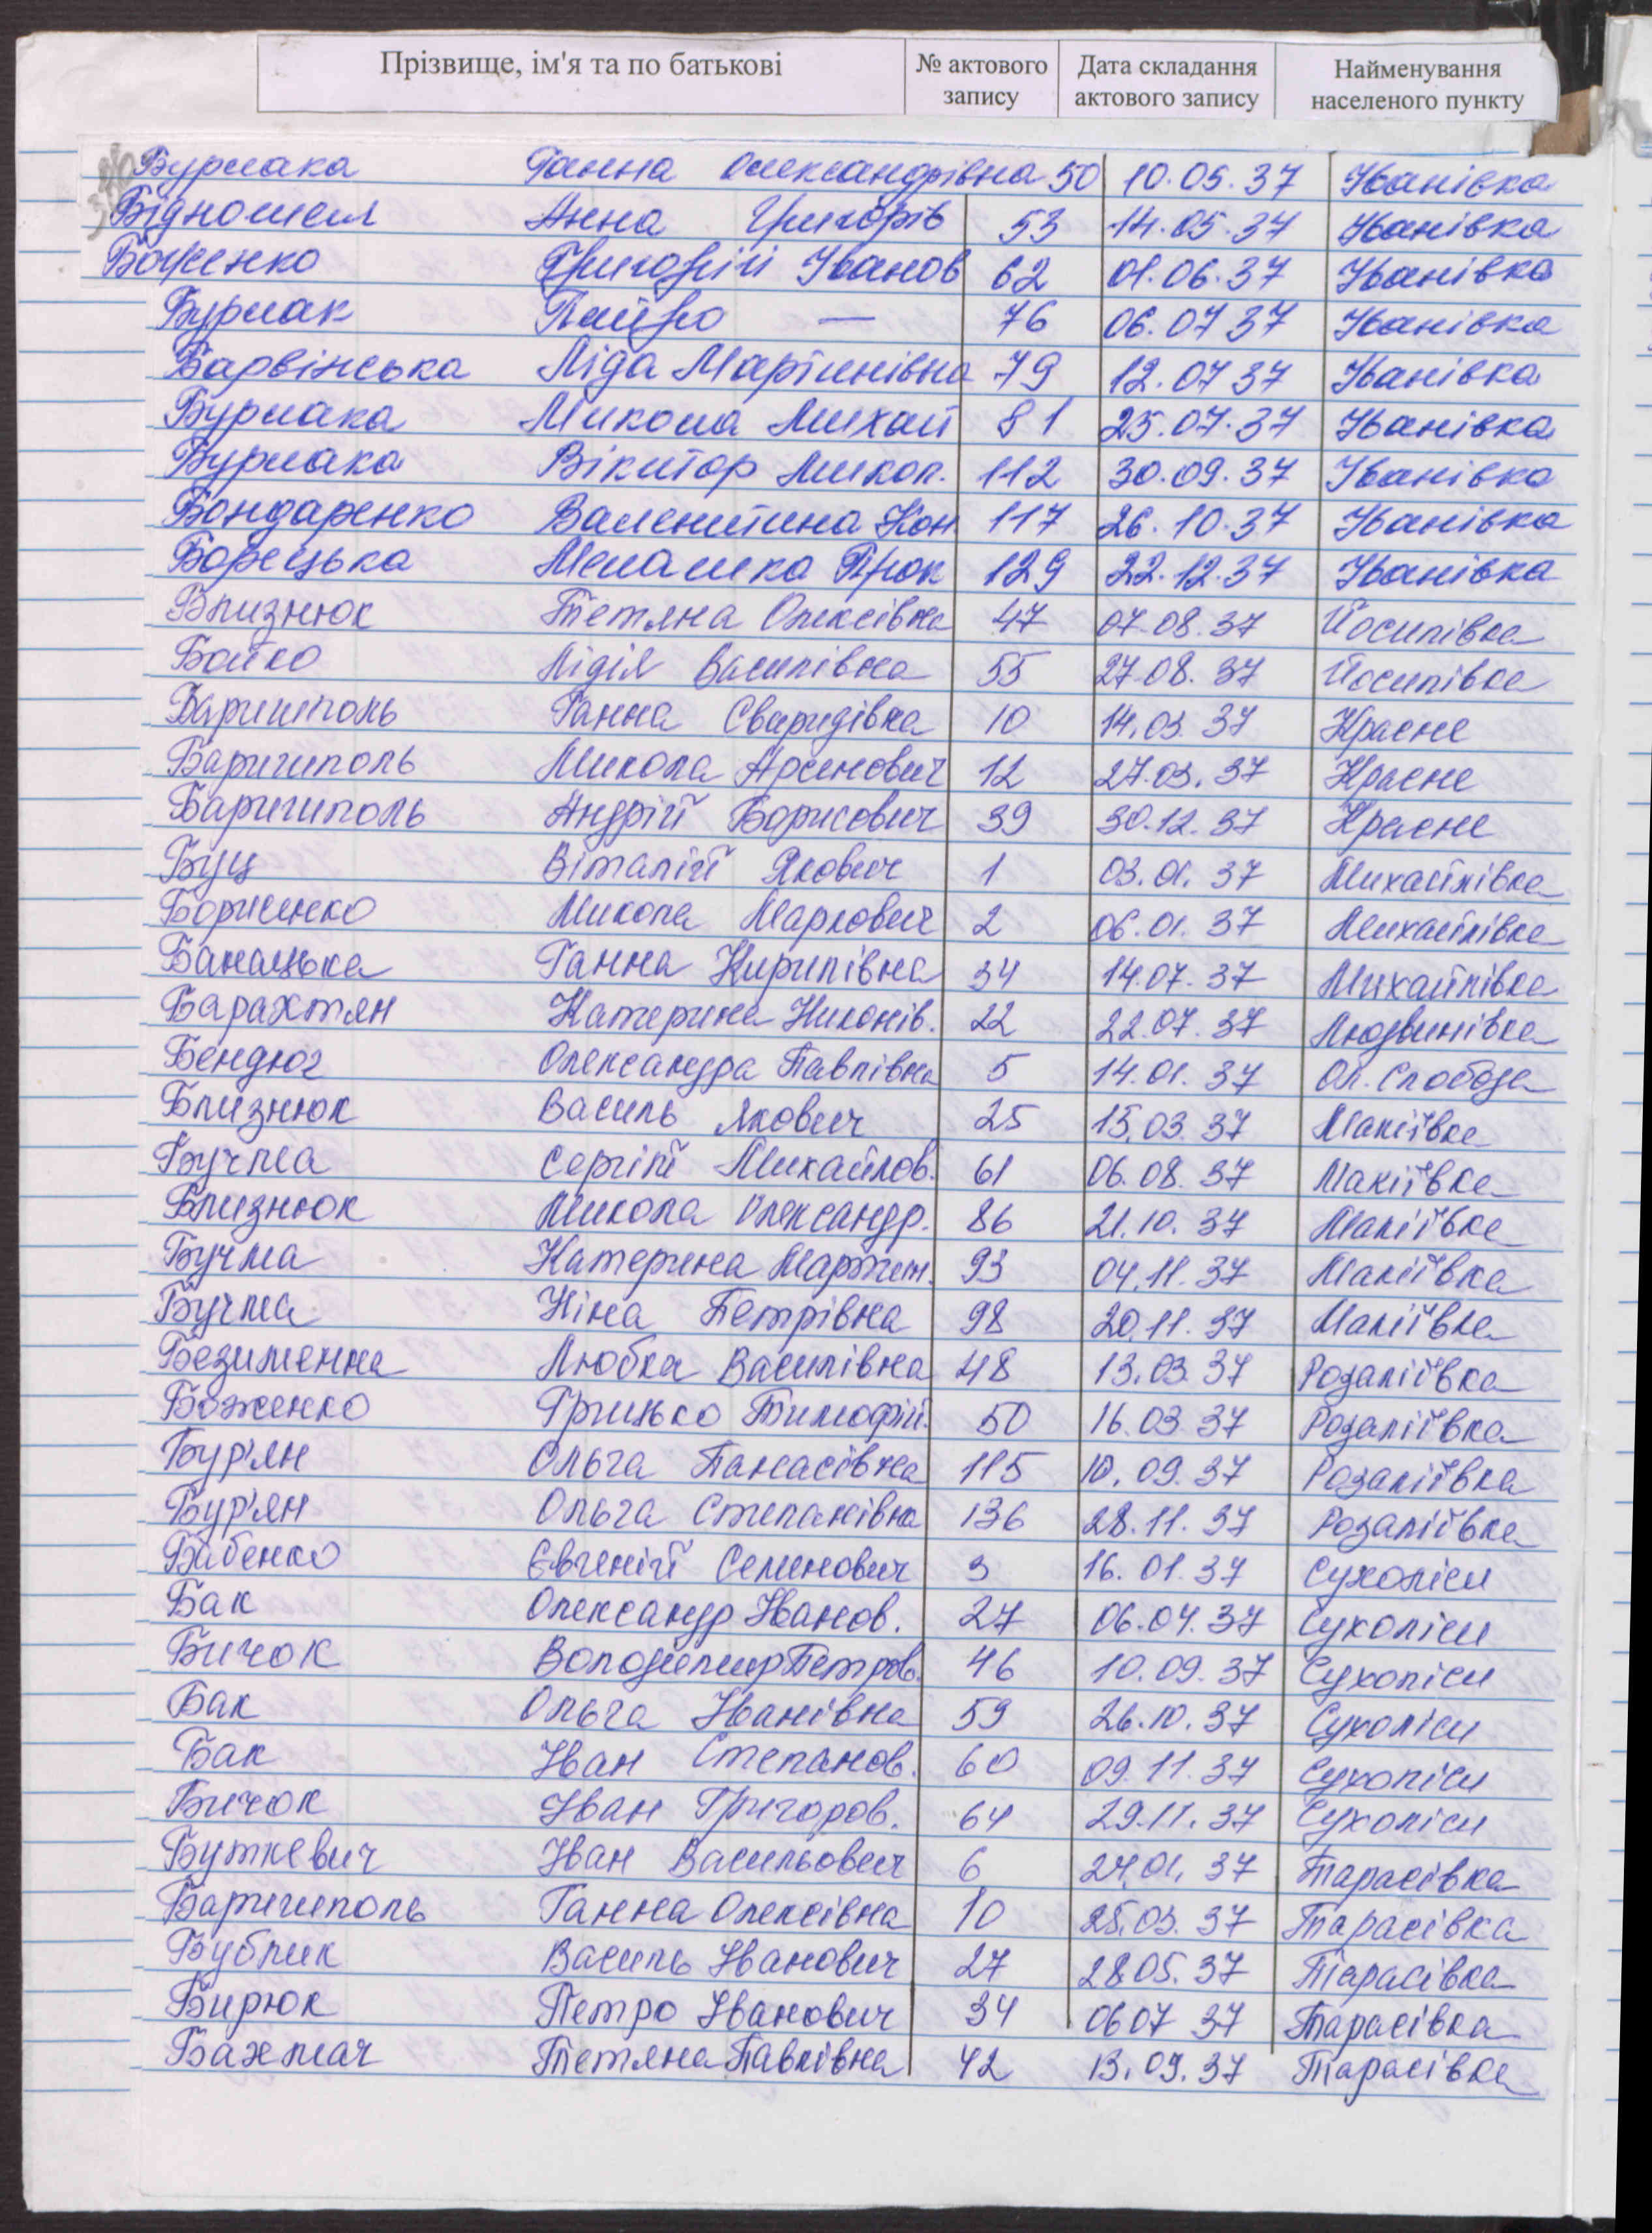 Прізвище, ім'я та по батькові № актового запису Дата складання актового запису Найменування населеного пункту
Бурлака Ганна Олександрівна 50 10.05.37 Іванівка
Бідношея Анна Григорів 53 14.05.37 Іванівка
Боженко Григорій Іванов 62 01.06.37 Іванівка
Бурлак — 76 06.07 37 Іванівка
Барвінська Ліда Мартинівна 79 12.07 37 Іванівка
Бурлака Микола Михай 81 25.07.37 Іванівка
Бурлака Віктор Микол. 112 30.09.37 Іванівка
Бондаренко Валентина Кон. 117 26.10.37 Іванівка
Борецька Меланка 129 22.12.37 Іванівка
Близнюк Тетяна Олексівна 47 07.08.37 Йосипівка
Бойко Лідія Василівна 55 27.08.37 Йосипівка
Баришполь Ганна Свиридівна 10 14.03.37 Красне
Баришполь Микола Арсенович 12 27.03.37 Красне
Баришполь Андрій Борисович 39 30.12.37 Красне
Буц Віталій Якович 1 03.01.37 Михайлівка
Борисенко Микола Маркович 2 06.01.37 Михайлівка
Банацька Ганна Кирилівна 34 14.07.37 Михайлівка
Барахтян Катерина Никонів. 22 22.07.37 Людвинівка
Бендюг Олександра Павлівна 5 14.01.37 Ол. Слобода
Близнюк Василь Якович 25 15.03.37 Макіївка
Бучма Сергій Михайлов. 61 06.08.37 Макіївка
Близнюк Микола Олександр. 86 21.10.37 Макіївка
Бучма Катерина Мартин. 93 04.11.37 Макіївка
Бучма Ніна Петрівна 98 20.11.37 Макіївка
Безименна Любка Василівна 48 13.03.37 Розаліївка
Боженко Грицько Тимофій. 50 16.03.37 Розаліївка
Бур'ян Ольга Панасівна 115 10.09.37 Розаліївка
Бур'ян Ольга Степанівна 136 28.11.37 Розаліївка
Бабенко Євгеній Семенович 3 16.01.37 Сухоліси
Бак Олександр Іванов. 27 06.04.37 Сухоліси
Бичок Володимир Петров. 46 10.09.37 Сухоліси
Бак Ольга Іванівна 59 26.10.37 Сухоліси
Бак Іван Степанов. 60 09.11.37 Сухоліси
Бичок Іван Григоров. 64 29.11.37 Сухоліси
Буткевич Іван Васильович 6 24.01.37 Тарасівка
Баришполь Ганна Олексівна 10 25.03.37 Тарасівка
Бублик Василь Іванович 27 28.05.37 Тарасівка
Бирюк Петро Іванович 34 06 07 37 Тарасівка
Бахмач Тетяна Павлівна 42 13.09.37 Тарасівка